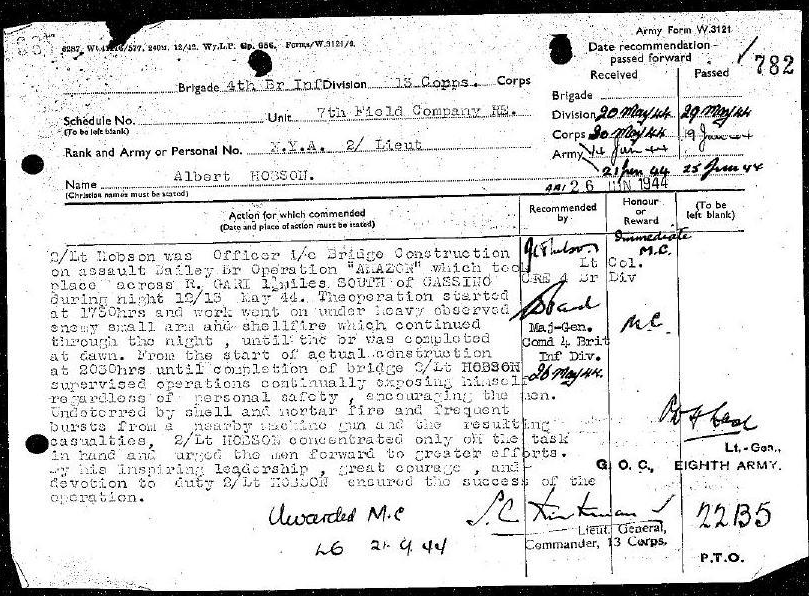 Army Form W.3121
6287. Wt. /577. 240M. 12/42. Wy.L.P. Gp. 656. Forms/W.3121/2.
Date recommendation passed forward
782
Received Passed
Brigade 4th Br Inf Division 13 Corps. Corps
Brigade
Schedule No. Unit 7th Field Company RE.
(To be left blank)
Division 20 May 44 29 May 44
Corps 30 May 44 19 June 44
Rank and Army or Personal No. N.Y.A. 2/ Lieut
Army 14 Jun 44
21 Jun 44 25 June 44
Name Albert HOBSON.
(Christian names must be stated)
26 JUN 1944
Action for which commended
(Date and place of action must be stated)
Recommended by
Honour or Reward
(To be left blank)
2/Lt Hobson was Officer i/c Bridge Construction
on assault Bailey Br Operation "AMAZON" which took
place across R. GARI 1½miles SOUTH of CASSINO
during night 12/13 May 44. Theoperation started
at 1730hrs and work went on under heavy observed
enemy small arm and shellfire which continued
through the night , until the br was completed
at dawn. From the start of actual construction
at 2030hrs until completion of bridge 2/Lt HOBSON
supervised operations continually exposing himself
regardless of personal safety , encouraging the men.
Undeterred by shell and mortar fire and frequent
bursts from a nearby machine gun and the resulting
casualties, 2/Lt HOBSON concentrated only on the task
in hand and urged the men forward to greater efforts.
By his inspiring leadership , great courage , and
devotion to duty 2/Lt HOBSON ensured the success of the
operation.
Immediate
M.C.
Lt Col.
CRE 4 Br Div
Maj-Gen.
Comd 4 Brit
Inf Div.
26 May 44.
M.C.
Lt.-Gen.,
G.O.C., EIGHTH ARMY.
Awarded M.C
LG 21.9.44
Lieut. General,
Commander, 13 Corps.
22B5
P.T.O.